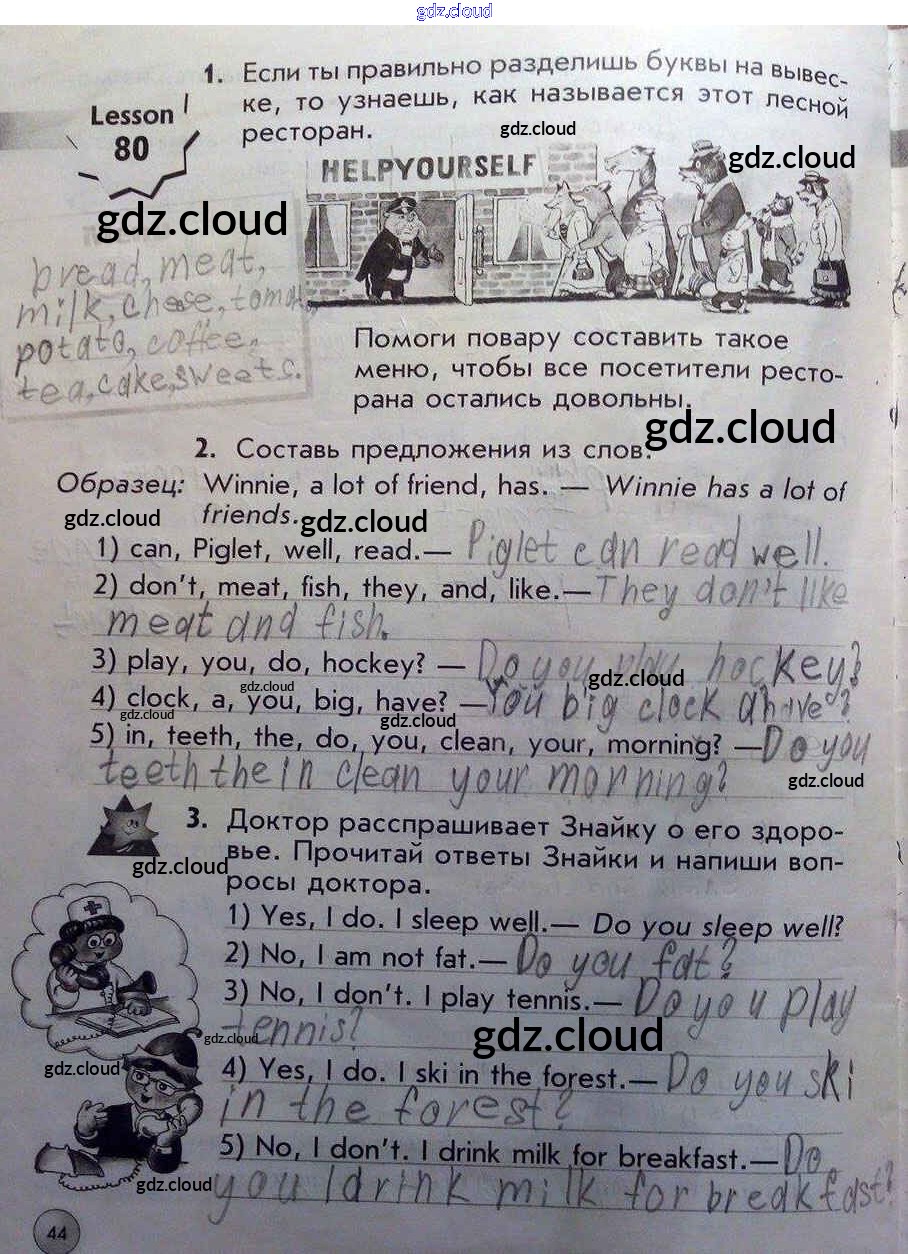 gdz.cloud
1. Если ты правильно разделишь буквы на вывес-
ке, то узнаешь, как называется этот лесной
ресторан.
Lesson
80
gdz.cloud
HELPYOURSELF
gdz.cloud
gdz.cloud
bread, meat,
milk, chese, tomat,
potato, coffee,
tea, cake, sweets.
Помоги повару составить такое
меню, чтобы все посетители ресто-
рана остались довольны.
gdz.cloud
2. Составь предложения из слов.
Образец: Winnie, a lot of friend, has. — Winnie has a lot of
friends.
gdz.cloud
gdz.cloud
1) can, Piglet, well, read.— Piglet can read well.
2) don't, meat, fish, they, and, like.— They don't like
meat and fish.
3) play, you, do, hockey? — Do you play hockey?
gdz.cloud
gdz.cloud
4) clock, a, you, big, have? — You big clock a have?
gdz.cloud
gdz.cloud
5) in, teeth, the, do, you, clean, your, morning? — Do you
teeth the in clean your morning?
gdz.cloud
3. Доктор расспрашивает Знайку о его здоро-
вье. Прочитай ответы Знайки и напиши воп-
росы доктора.
gdz.cloud
1) Yes, I do. I sleep well.— Do you sleep well?
2) No, I am not fat.— Do you fat?
3) No, I don't. I play tennis.— Do you play
tennis?
gdz.cloud
gdz.cloud
4) Yes, I do. I ski in the forest.— Do you ski
in the forest?
gdz.cloud
5) No, I don't. I drink milk for breakfast.— Do
you drink milk for breakfast?
gdz.cloud
44